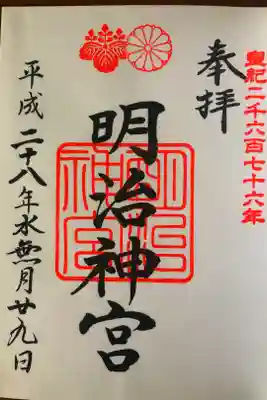 皇紀二千六百七十六年
奉拝
明治神宮
明治神宮
平成二十八年水無月廿九日